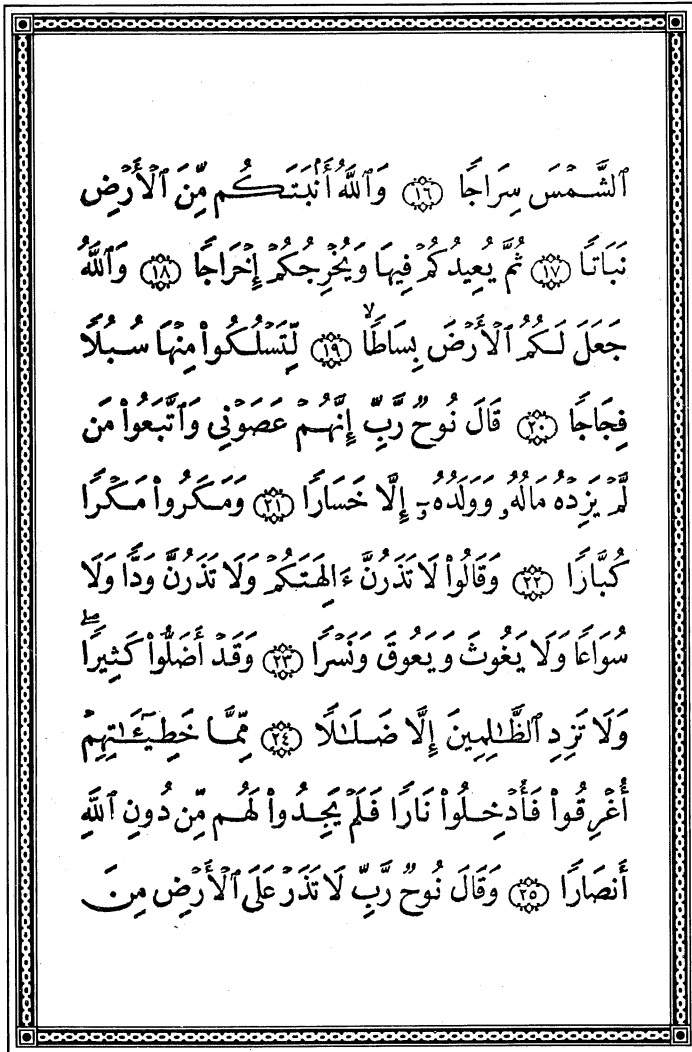 ٱلشَّمْسَ سِرَاجًا ١٦ وَٱللَّهُ أَنۢبَتَكُم مِّنَ ٱلْأَرْضِ
نَبَاتًا ١٧ ثُمَّ يُعِيدُكُمْ فِيهَا وَيُخْرِجُكُمْ إِخْرَاجًا ١٨ وَٱللَّهُ
جَعَلَ لَكُمُ ٱلْأَرْضَ بِسَاطًاۙ ١٩ لِّتَسْلُكُوا۟ مِنْهَا سُبُلًا
فِجَاجًا ٢٠ قَالَ نُوحٌ رَّبِّ إِنَّهُمْ عَصَوْنِى وَٱتَّبَعُوا۟ مَن
لَّمْ يَزِدْهُ مَالُهُۥ وَوَلَدُهُۥٓ إِلَّا خَسَارًا ٢١ وَمَكَرُوا۟ مَكْرًا
كُبَّارًا ٢٢ وَقَالُوا۟ لَا تَذَرُنَّ ءَالِهَتَكُمْ وَلَا تَذَرُنَّ وَدًّا وَلَا
سُوَاعًا وَلَا يَغُوثَ وَيَعُوقَ وَنَسْرًا ٢٣ وَقَدْ أَضَلُّوا۟ كَثِيرًاۖ
وَلَا تَزِدِ ٱلظَّٰلِمِينَ إِلَّا ضَلَٰلًا ٢٤ مِّمَّا خَطِيٓـَٰٔتِهِمْ
أُغْرِقُوا۟ فَأُدْخِلُوا۟ نَارًا فَلَمْ يَجِدُوا۟ لَهُم مِّن دُونِ ٱللَّهِ
أَنصَارًا ٢٥ وَقَالَ نُوحٌ رَّبِّ لَا تَذَرْ عَلَى ٱلْأَرْضِ مِنَ